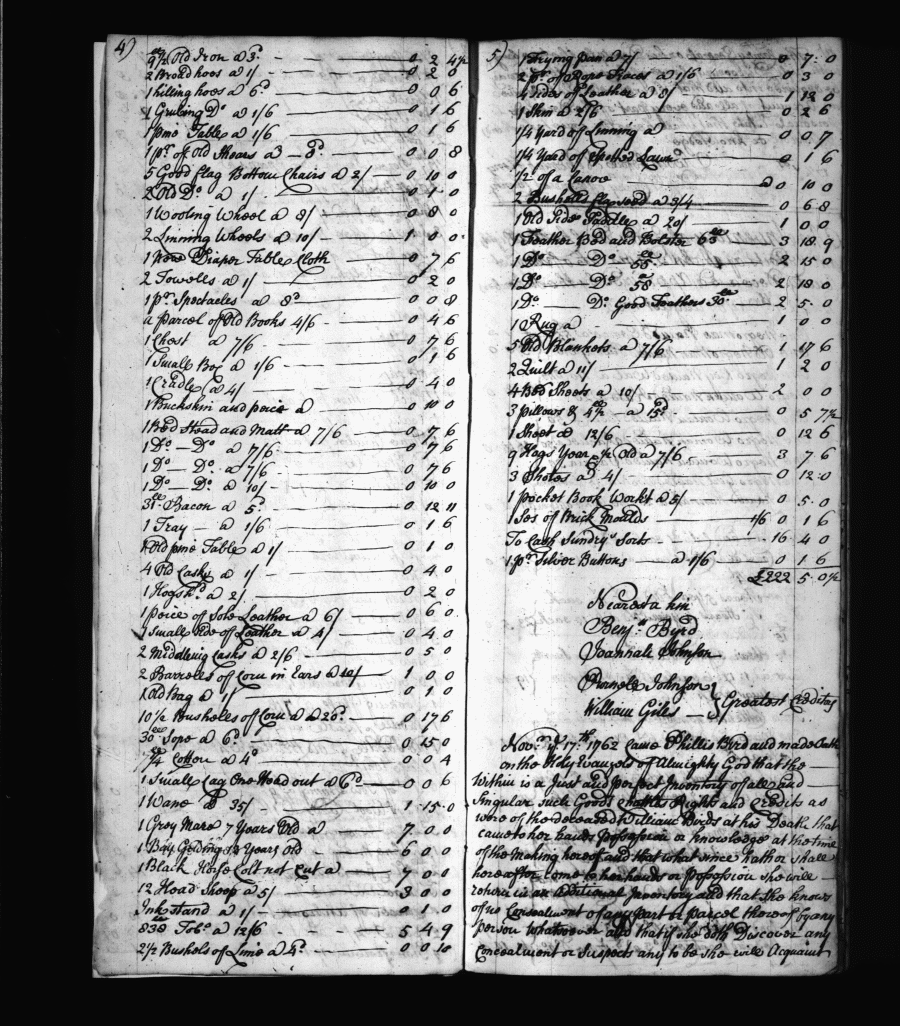 4)
9½ lb Old Iron a 3d 0 2 4½
2 Broad hoes a 1/ 0 2 0
1 hilling hoes a 6d 0 0 6
1 Grubing Do a 1/6 0 1 6
1 pine Table a 1/6 0 1 6
1 pr of Old Shears a 8d 0 0 8
5 Good flag Bottom Chairs a 2/ 0 10 0
2 Old Do a 1/ 0 1 0
1 Wooling Wheel a 8/ 0 8 0
2 Linning Wheels a 10/ 1 0 0
1 Diaper Table Cloth 0 7 6
2 Towells a 1/ 0 2 0
1 pr Spectacles a 8d 0 0 8
a Parcel of Old Books 4/6 0 4 6
1 Chest a 7/6 0 7 6
1 Small Box a 1/6 0 1 6
1 Cradle a 4/ 0 4 0
1 Buckskin and peice a 0 10 0
1 Bed Stead and Matt a 7/6 0 7 6
1 Do — Do a 7/6 0 7 6
1 Do — Do a 7/6 0 7 6
1 Do — Do a 10/ 0 10 0
31 lb Bacon a 5d 0 12 11
1 Tray — a 1/6 0 1 6
1 Old pine Table a 1/ 0 1 0
4 Old Casks a 1/ 0 4 0
1 Hogshd a 2/ 0 2 0
1 peice of Sole Leather a 6/ 0 6 0
1 Small Side of Leather a 4/ 0 4 0
2 Middleing Casks a 2/6 0 5 0
2 Barrells of Corn in Ears a 10/ 1 0 0
1 Old Bag a 1/ 0 1 0
10½ Bushells of Corn a 20d 0 17 6
30 lb Sope a 6d 0 15 0
Cotton a 4d 0 0 4
1 Small Cag One Head out a 6d 0 0 6
1 Vane a 35/ 1 15 0
1 Grey Mare 7 Years Old a 7 0 0
1 Bay Gelding Years Old 6 0 0
1 Black Horse Colt not Cut a 7 0 0
12 Head Sheep a 5/ 3 0 0
Ink stand a 1/ 0 1 0
838 lb Tobo a 12/6 5 4 9
2½ Bushels of Lime a 4d 0 0 10
5)
1 Frying pan a 7/ 0 7 0
2 pr of Rope Traces a 1/6 0 3 0
4 Sides of Leather a 8/ 1 12 0
1 Skin a 2/6 0 2 6
1/4 Yard of Linning a 0 0 7
1/4 Yard of Spotted Lawn 0 1 6
1/2 of a Canoe a 0 10 0
2 Bushells flaxseed a 3/4 0 6 8
1 Old Side Saddle a 20/ 1 0 0
1 Feather Bed and Bolster 63 lb 3 18 9
1 Do — Do 55 lb 2 15 0
1 Do — Do 58 lb 2 18 0
1 Do — Do Good Feathers 30 lb 2 5 0
1 Rug a 1 0 0
5 Old Blankets a 7/6 1 17 6
2 Quilt a 11/ 1 2 0
4 Bed Sheets a 10/ 2 0 0
3 pillows & 4½ lb a 15d 0 5 7½
1 Sheet a 12/6 0 12 6
9 Hogs Year & ½ Old a 7/6 3 7 6
3 Shotes a 4/ 0 12 0
1 Pocket Book Workt a 5/ 0 5 0
1 Set of Brick Moulds 1/6 0 1 6
To Cash Sundry Sorts 16 4 0
1 pr Silver Buttons a 1/6 0 1 6
£222 5 0½
Nearest a kin
Benjn Byrd
Joannah Johnson
Johnson
William Giles } Greatest Creditrs
Novr ye 17th 1762 Came Phillis Bird and made Oath
on the Holy Evangels of Almighty God that the
Within is a Just and perfect Inventory of all and
Singular such Goods Chattles Rights and Credits as
were of the deceased William Birds at his Death that
came to her hands possession or knowledge at the time
of the making hereof and that what since hath or shall
hereafter come to her hands or possession she will
return in an additional Inventory and that she knows
of no Concealment of any part or parcel thereof by any
person whatsoever and that if she doth Discover any
Concealment or suspects any to be she will Acquaint